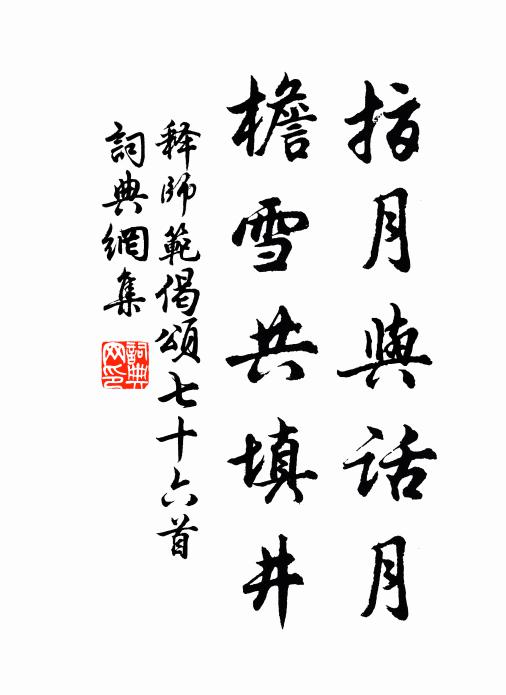 指月與話月
檐雪共填井
释師範偈頌七十六首
詞典網集
詞典網印